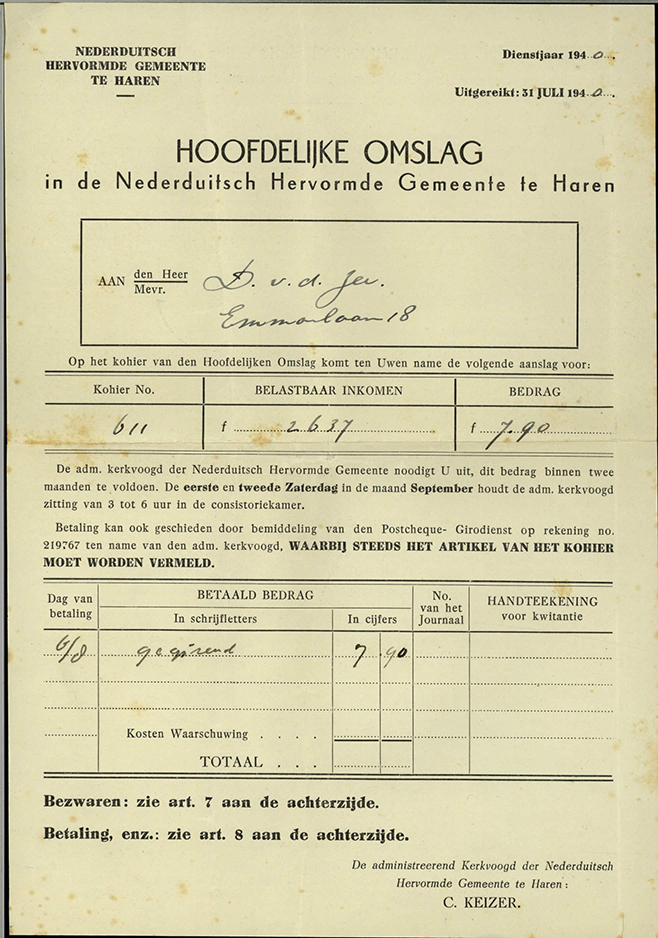 NEDERDUITSCH
HERVORMDE GEMEENTE
TE HAREN
Dienstjaar 1940.
Uitgereikt: 31 JULI 1940.
HOOFDELIJKE OMSLAG
in de Nederduitsch Hervormde Gemeente te Haren
AAN den Heer
Mevr.
D. v. d. Jer.
Emmalaan 18
Op het kohier van den Hoofdelijken Omslag komt ten Uwen name de volgende aanslag voor:
Kohier No. BELASTBAAR INKOMEN BEDRAG
611 f 2637 f 7.90
De adm. kerkvoogd der Nederduitsch Hervormde Gemeente noodigt U uit, dit bedrag binnen twee
maanden te voldoen. De eerste en tweede Zaterdag in de maand September houdt de adm. kerkvoogd
zitting van 3 tot 6 uur in de consistoriekamer.
Betaling kan ook geschieden door bemiddeling van den Postcheque- Girodienst op rekening no.
219767 ten name van den adm. kerkvoogd, WAARBIJ STEEDS HET ARTIKEL VAN HET KOHIER
MOET WORDEN VERMELD.
Dag van
betaling
BETAALD BEDRAG
In schrijfletters In cijfers
No.
van het
Journaal
HANDTEEKENING
voor kwitantie
6/8 gegireerd 7.90
Kosten Waarschuwing . . . .
TOTAAL . . .
Bezwaren: zie art. 7 aan de achterzijde.
Betaling, enz.: zie art. 8 aan de achterzijde.
De administreerend Kerkvoogd der Nederduitsch
Hervormde Gemeente te Haren:
C. KEIZER.